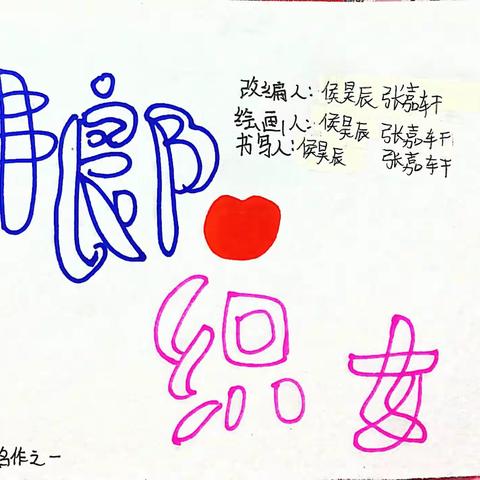 改编人:侯昊辰 张嘉轩
绘画人:侯昊辰 张嘉轩
书写人:侯昊辰 张嘉轩
牛郎
织女
名作之一